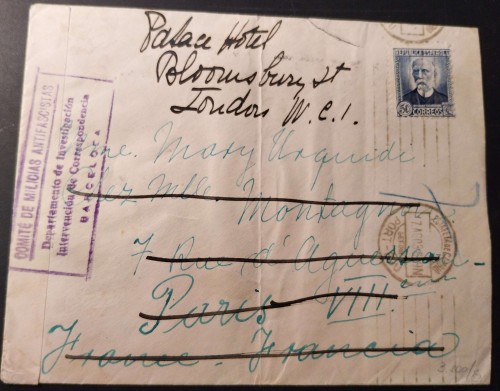 Palace Hotel
Bloomsbury St
London W.C.1.
REPUBLICA ESPAÑOLA
50 CORREOS
COMITÉ DE MILICIAS ANTIFASCISTAS
Departamento de Investigación
Intervención de Correspondencia
BARCELONA
Mme. Mary Urquidi
chez Mlle Montagne
7 Rue d'Aguesseau
Paris VIII
France - Francia